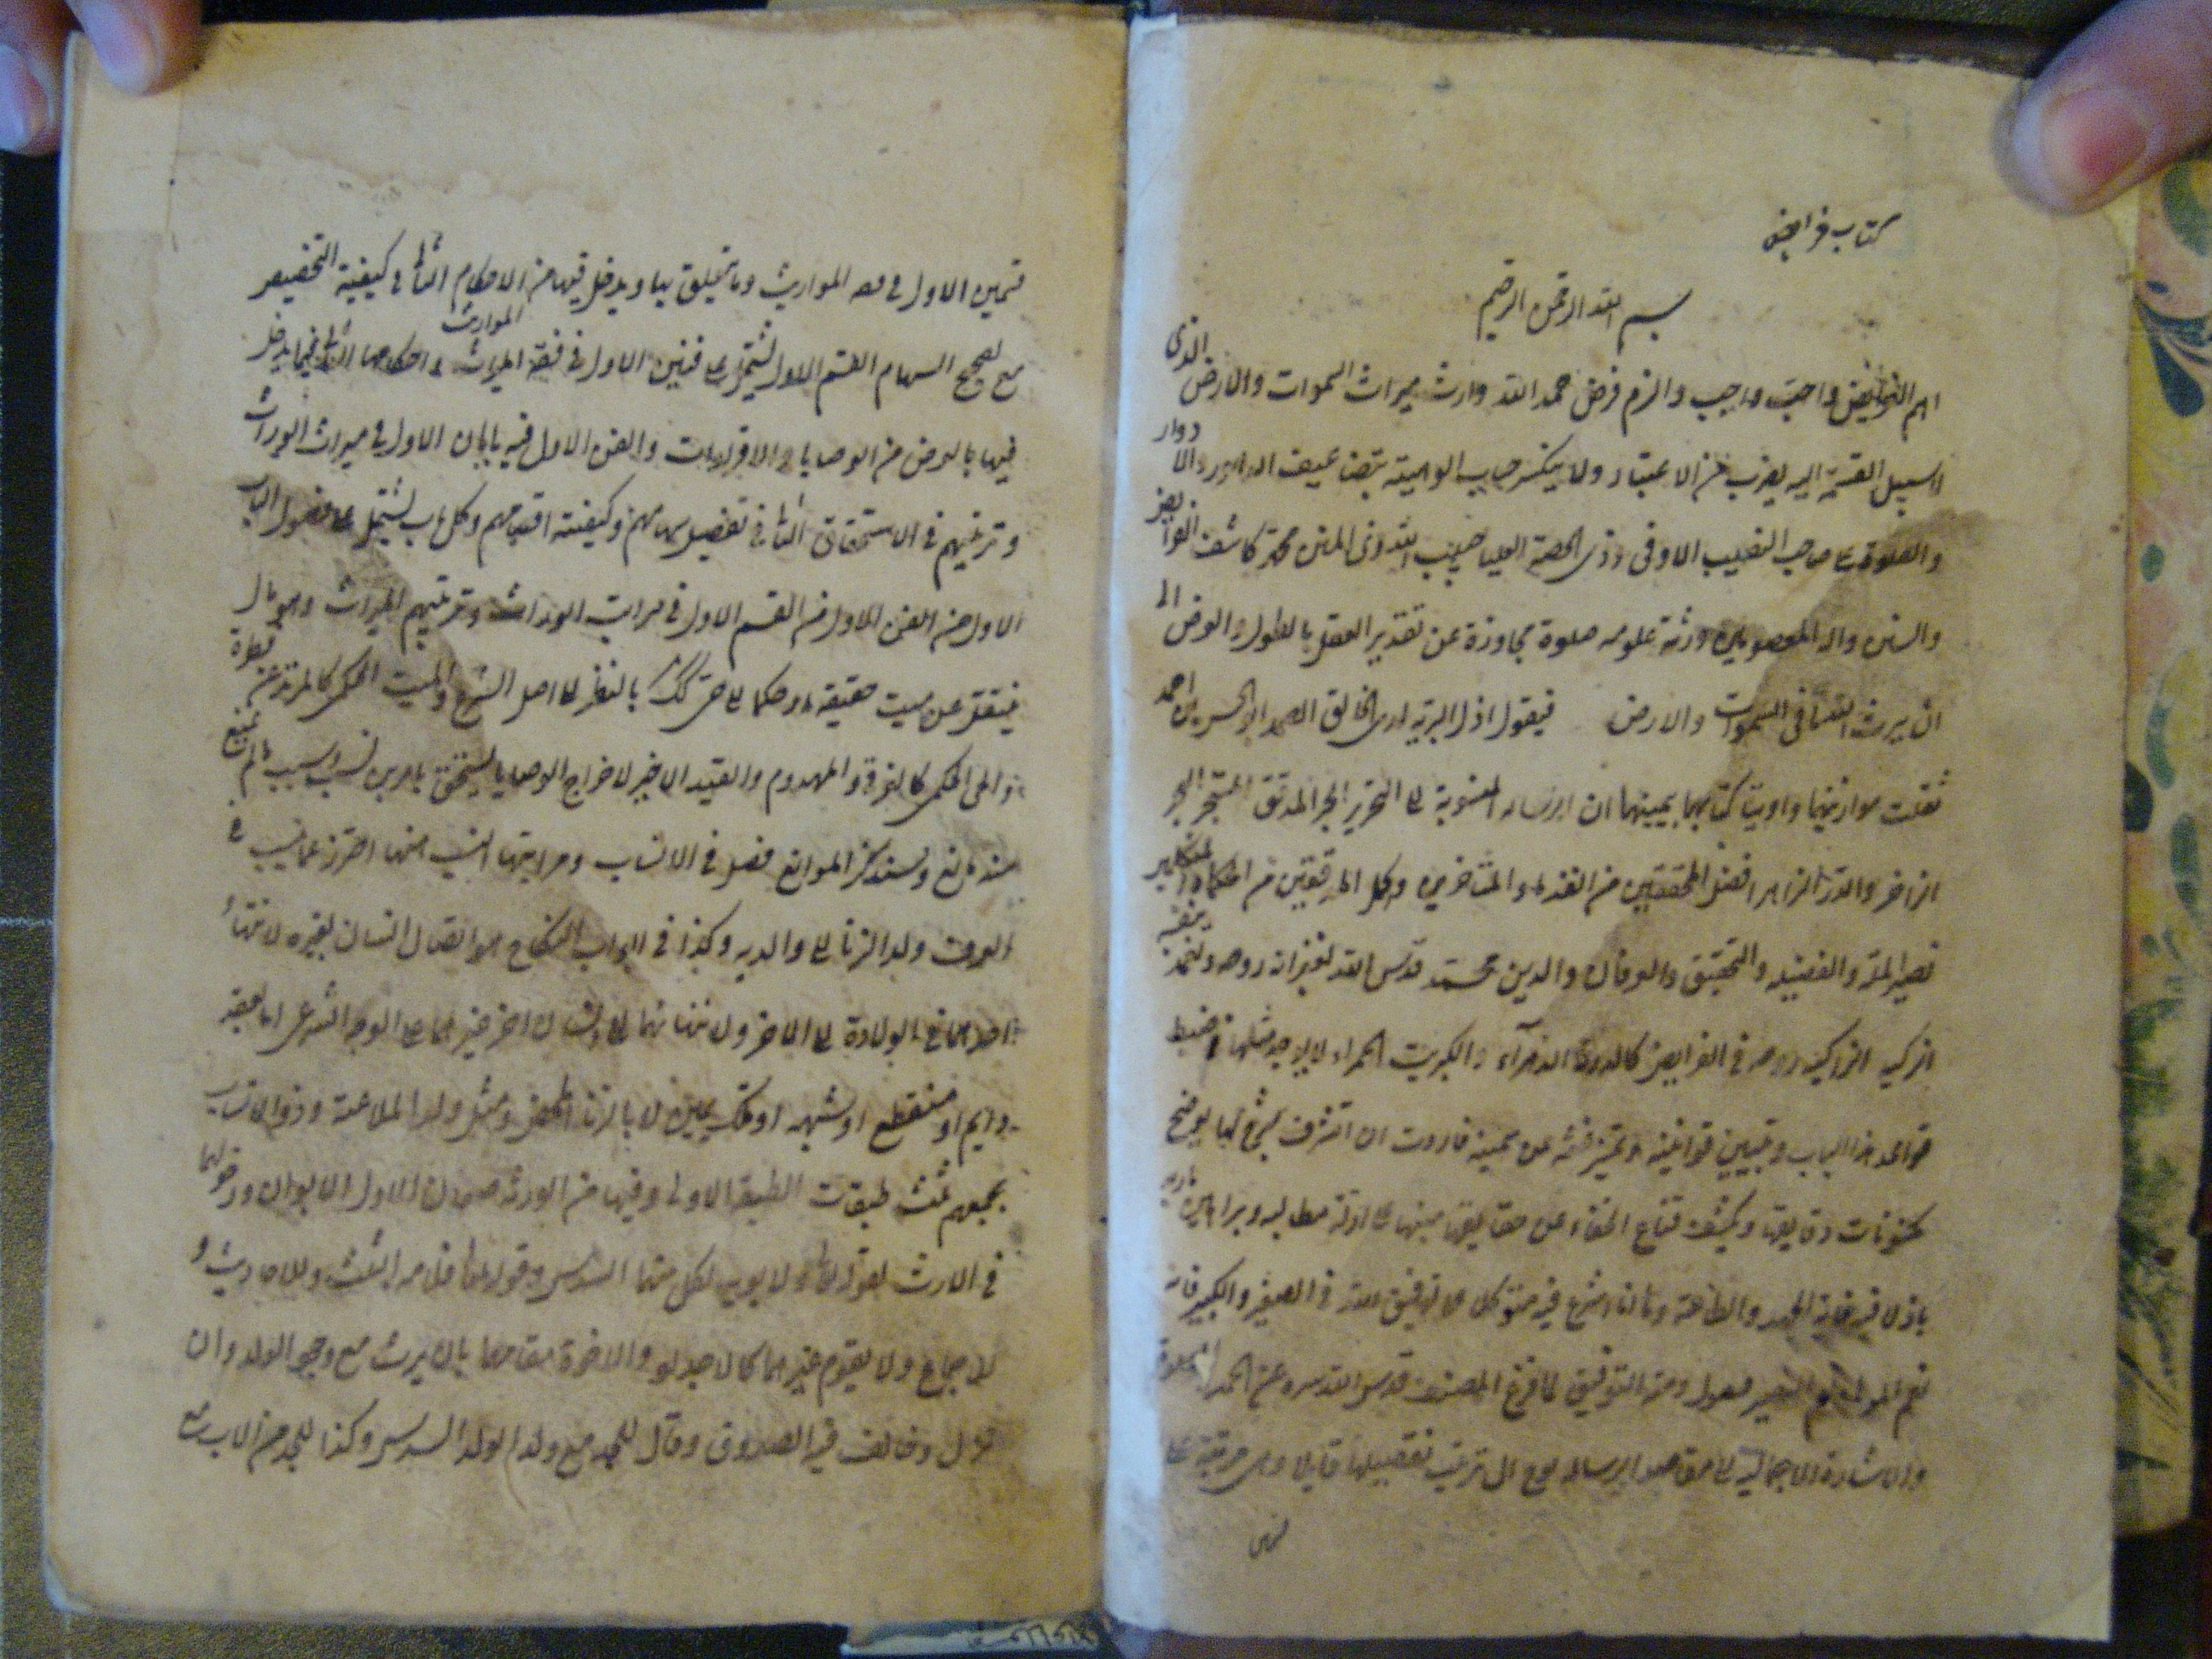 كتاب فرايض
بسم الله الرحمن الرحيم
اهم الفرايض واحب واجب والزم فرض حمد الله وارث ميراث السموات والارض الذى
لسبيل القربة اليه يضرب من الاعتبار ولا ينكسر جناب الوهيته بتضاعيف الدهور والادوار
والصلوة على صاحب النصيب الاوفى وذى الحصة العليا حبيب الله وفى محمد كاشف الفرايض
والسنن واله المعصومين ورثة علومه صلوة مجاوزة عن تقدير العقل بالطول والعرض الى
ان يرث الله ما فى السموات والارض فيقول اذل البرية لدى الخالق الصمد ابو الحسن بن احمد
ثقلت موازينهما واوتيا كتابهما بيمينهما ان الرسالة المنسوبة الى النحرير الحبر المدقق المتبحر البحر
الزاخر والدر الزاهر افضل المحققين من القدماء والمتاخرين وكمل المدققين من الحكماء
نصير الملة والفضيلة والتحقيق والعرفان والدين محمد قدس الله لغفرانه روحه
الزكيه فى الفرايض كالدرة الزهرآء والكبريت الحمراء لا يوجد مثلها فى ضبط
قواعد هذا الباب وتبيين قوانينه وتميز غثه عن سمينه فاردت ان اتشرف بشرح لها يوضح
مكنونات دقايقها ويكشف قناع الخفاء عن حقايقها مبنيها على ادلة مطالبه وبراهين
باذلا فيه غاية الجهد والطاقة وها انا اشرع فيه متوكلا على توفيق الله فى الصغير والكبير فانه
نعم المولى ونعم النصير التوفيق لما فرغ المصنف قدس الله سره عن الحمد والصلوة
والاشارة الاجمالية الى مقاصد الرساله الى ترتيب تفصيلها قايلا وهى مرتبة على
قسمين الاول فى المواريث وما يتعلق بها ويدخل فيها من الاحكام الثانى كيفية التحصيص
مع تصحيح السهام القسم الاول يشتمل على فنين الاول فى فقه المواريث واحكامها الثانى فيما يدخل
فيها بالعرض من الوصايا والاقرارات والفن الاول فيه بابان الاول فى ميراث الوراث
وترتيبهم فى الاستحقاق الثانى فى تفصيل سهامهم وكيفية اقتسامهم وكل باب يشتمل على فصول الباب
الاول من الفن الاول من القسم الاول فى مراتب الوراث وترتيبهم الميراث وهو مال
ينتقل عن ميت حقيقة او حكما الى حى كذلك بالنظر الى اصل الشرع والميت الحكمى كالمرتد عن فطرة
والحى الحكمى كالغرقى والمهدوم والقيد الاخير لاخراج الوصايا يستحق بامرين نسب وسبب ما لم يمنع
منه مانع وستذكر الموانع فصل فى الانساب ومراتبها النسب هنا احتراز عما نسب فى
العرف ولد الزنا الى والديه وكذا فى ابواب النكاح هو اتصال انسان بغيره لانتهاء
احدهما فى الولادة الى الاخر ولانتهائهما الى انسان اخر غيرهما على الوجه الشرعى اما بعقد
دايم او منقطع او شبهه او ملك يمين لا بالزنا المحض ومثل ولد الملاعنة وذوو الانساب
بجمعهم ثلث طبقات الطبقة الاولى وفيها من الورثه صنفان الاول الابوان
فى الارث لقوله تعالى ولابويه لكل منهما السدس وقوله تعالى فلامه الثلث وللاحاديث و
الاجماع ولا يقوم غيرهما كالاجداد والاخوة مقامهما بان يرث مع وجود الولد وان
نزل وخالف فيه الصدوق وقال للجد مع ولد الولد السدس وكذا للجد من الاب مع